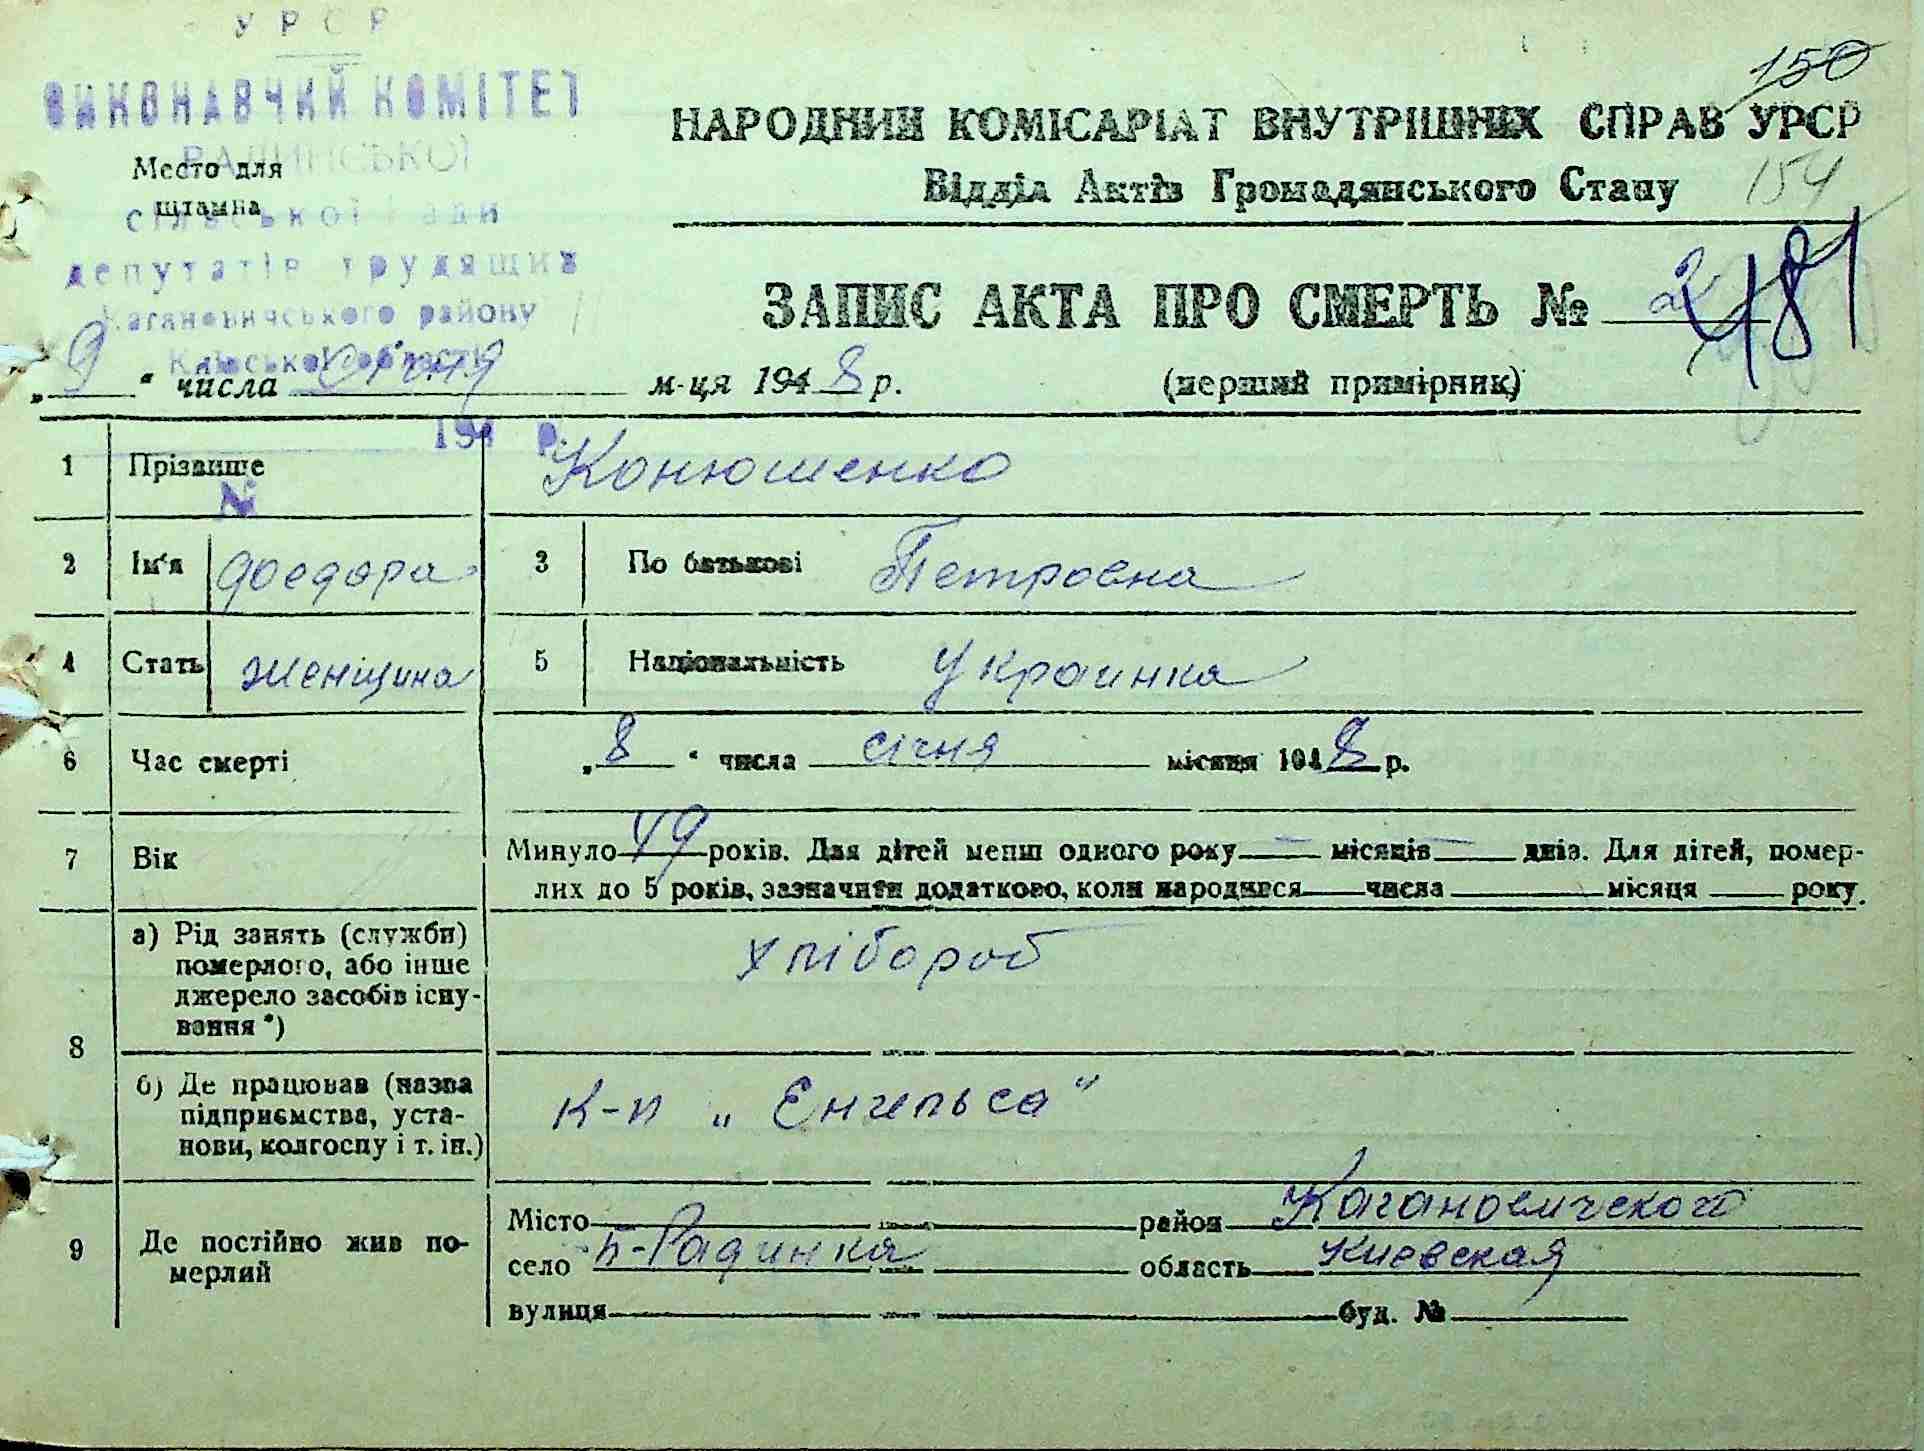 УРСР
ВИКОНАВЧИЙ КОМІТЕТ
РАДИНСЬКОЇ
Место для
штампа
сільської Ради
депутатів трудящих
Кагановичського району
Київської області
194 р.
№
150
НАРОДНИЙ КОМІСАРІАТ ВНУТРІШНІХ СПРАВ УРСР
Відділ Актів Громадянського Стану
154
ЗАПИС АКТА ПРО СМЕРТЬ № 2 181
„9“ числа січня м-ця 1948 р. (перший примірник)
1 Прізвище Конюшенко
2 Ім'я Федора 3 По батькові Петровна
4 Стать женщина 5 Національність Украинка
6 Час смерті „8“ числа січня місяця 1948 р.
7 Вік Минуло 49 років. Для дітей менш одного року — місяців — днів. Для дітей, помер-
лих до 5 років, зазначити додатково, коли народився числа місяця року.
8 а) Рід занять (служби) хлібороб
померлого, або інше
джерело засобів існу-
вання *)
б) Де працював (назва к-п „Енгельса“
підприємства, уста-
нови, колгоспу і т. ін.)
9 Де постійно жив по-
мерлий
Місто район Кагановичского
село п-Радинка область Киевская
вулиця буд. №